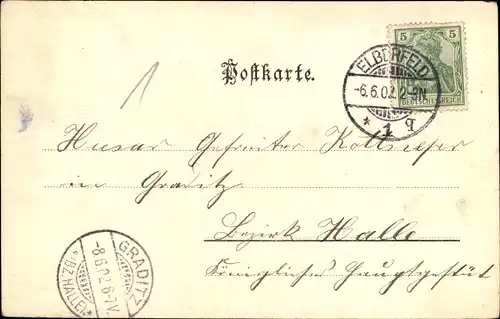 5 5
DEUTSCHES REICH
ELBERFELD
-6.6.02.2-3N.
* 1 q
Postkarte.
1
Husar Gefreiter
in Graditz
Bezirk Halle
Königliches Hauptgestüt
GRADITZ
-8.6.02.6-7V.